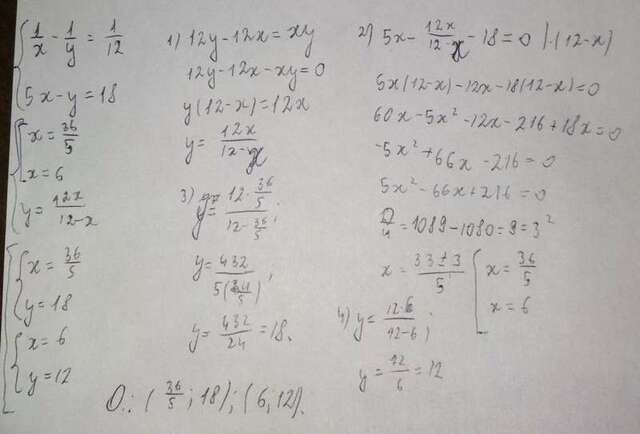 1/x - 1/y = 1/12
5x - y = 18
x = 36/5
x = 6
y = 12x/(12-x)
x = 36/5
y = 18
x = 6
y = 12
1) 12y - 12x = xy
12y - 12x - xy = 0
y(12-x) = 12x
y = 12x/(12-x)
3) y = (12·36/5)/(12-36/5);
y = 432/(5(24/5));
y = 432/24 = 18.
2) 5x - 12x/(12-x) - 18 = 0 |·(12-x)
5x(12-x) - 12x - 18(12-x) = 0
60x - 5x² - 12x - 216 + 18x = 0
-5x² + 66x - 216 = 0
5x² - 66x + 216 = 0
D/4 = 1089 - 1080 = 9 = 3²
x = (33±3)/5
x = 36/5
x = 6
4) y = (12·6)/(12-6);
y = 72/6 = 12
О.: (36/5; 18); (6; 12).